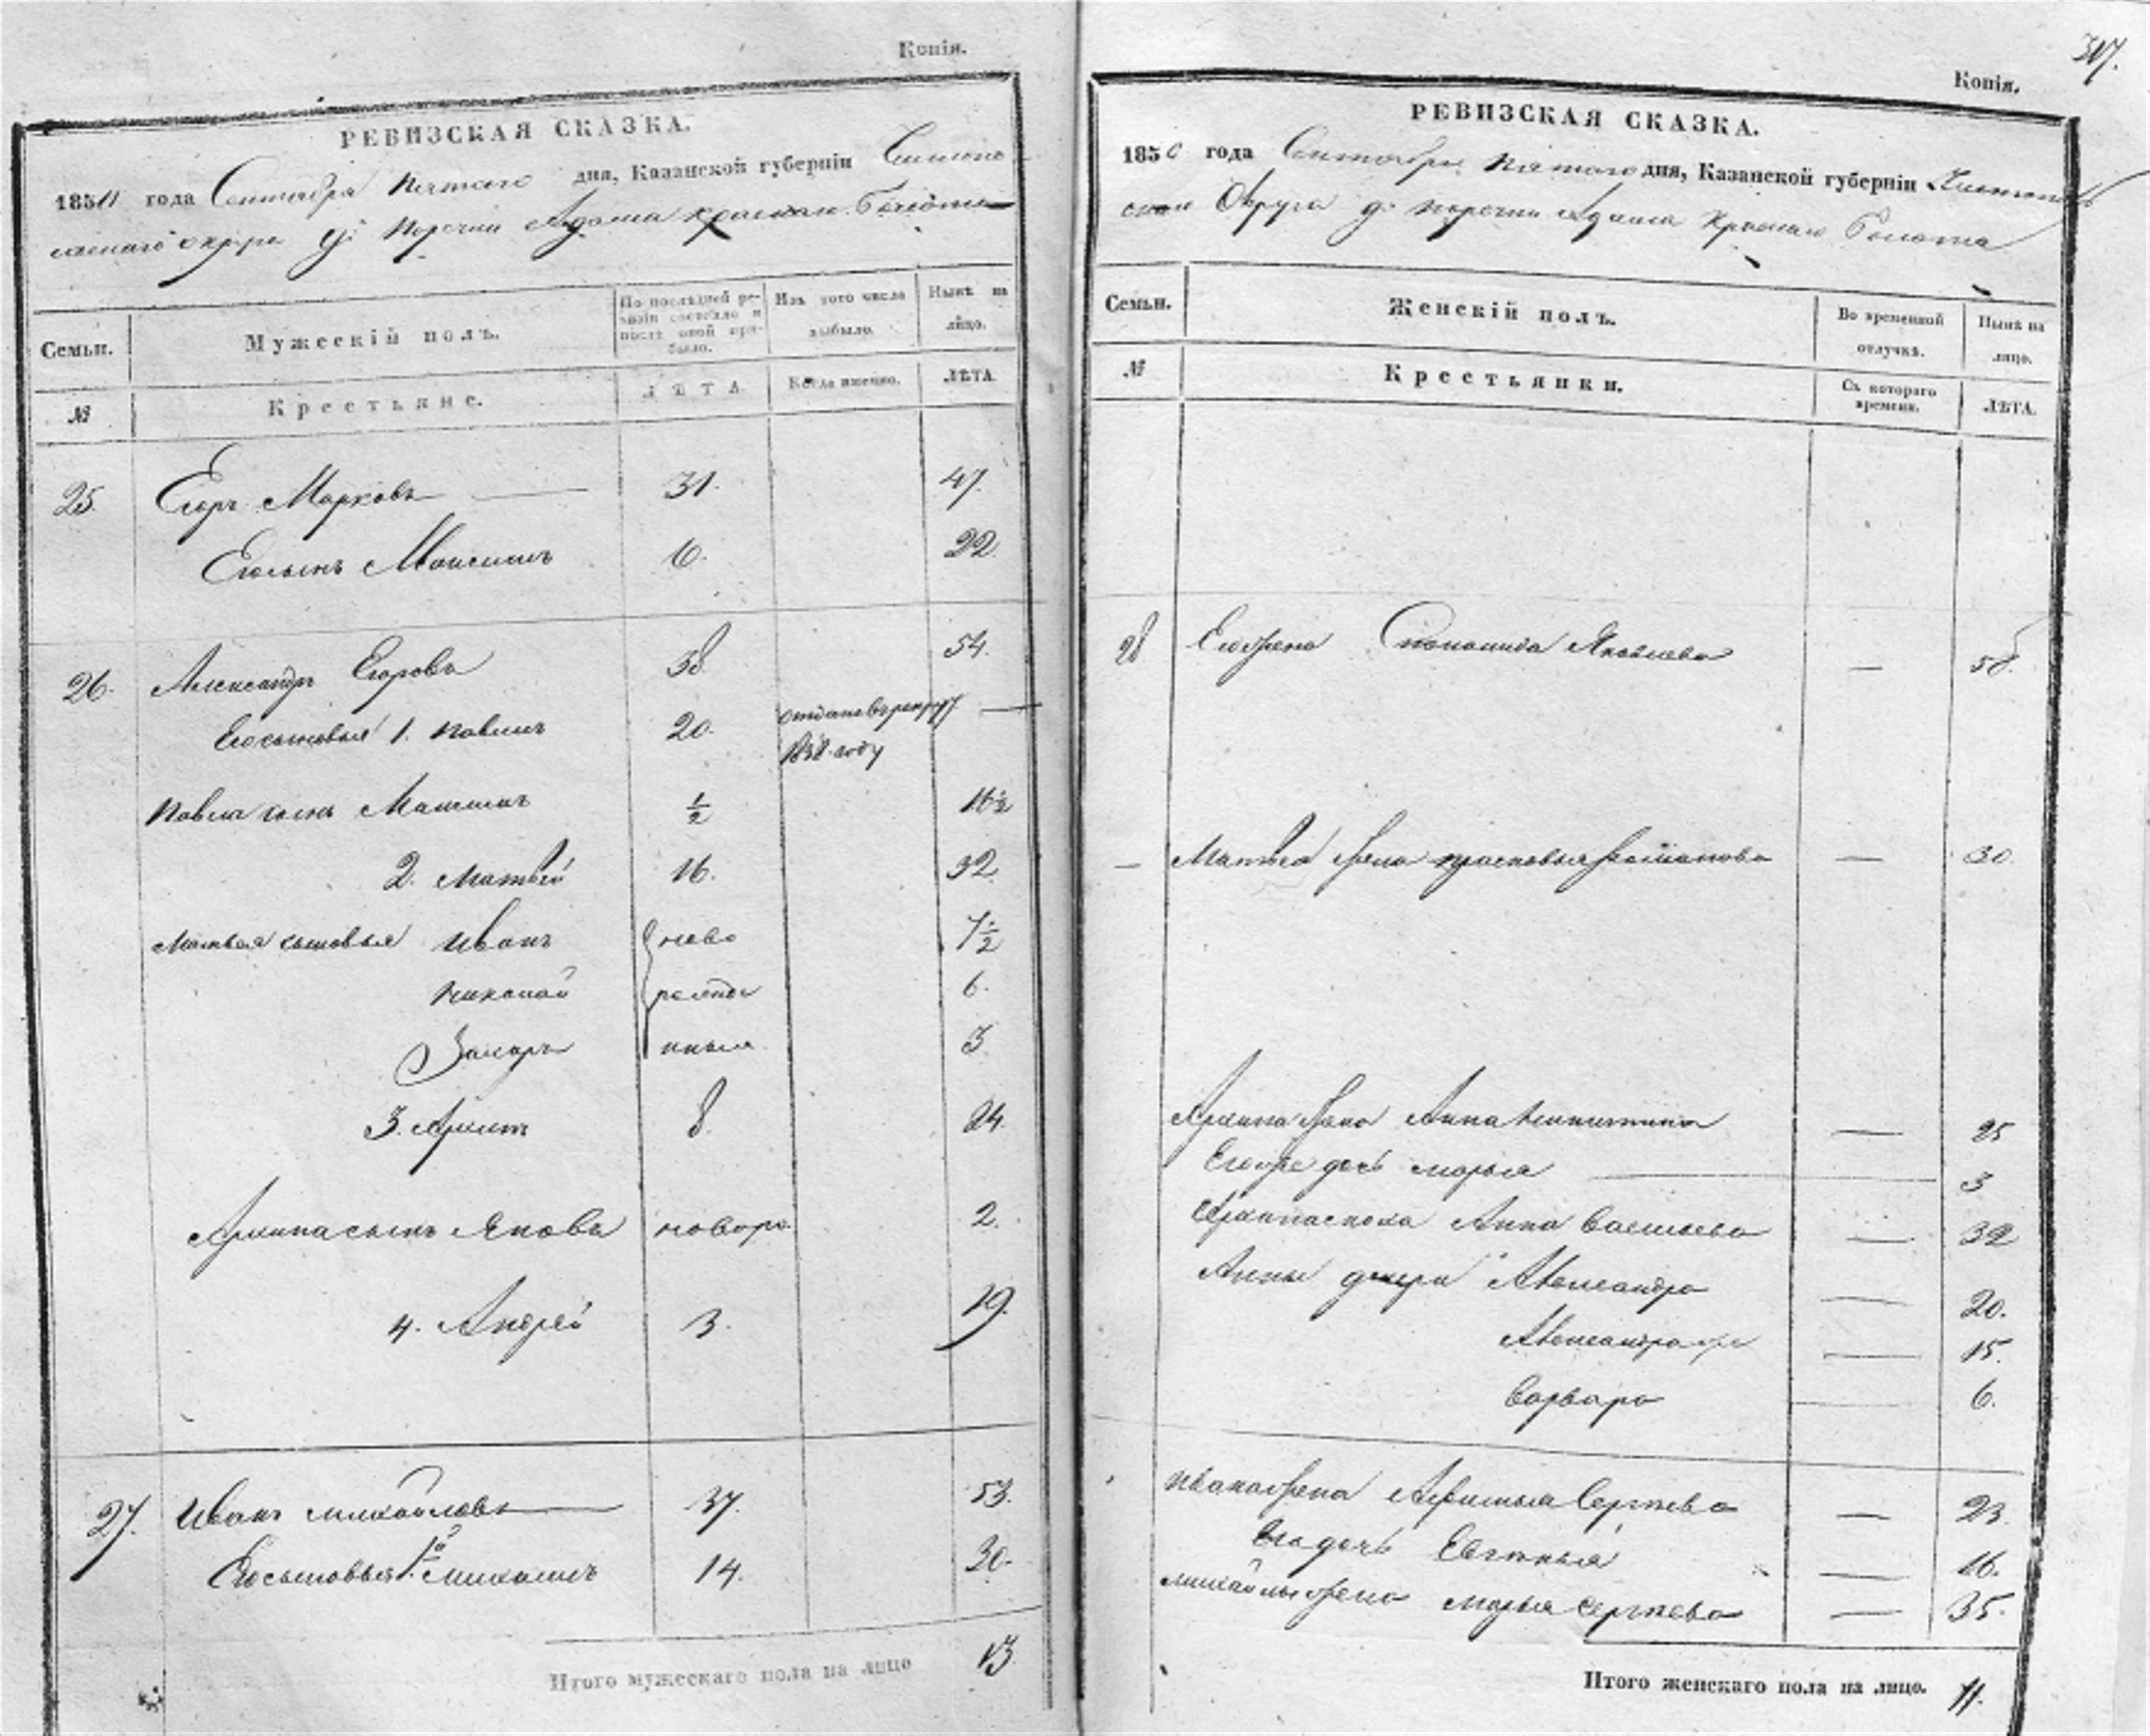 Копія.
РЕВИЗСКАЯ СКАЗКА.
1850 года Сентября пятаго дня, Казанской губерніи Чистопо
льскаго округа д: Поречки Адама Краснаго Болота
Семьи.
Мужескій полъ.
По последней ре-
визіи состояло и
после оной при-
было.
Изъ того числа
выбыло.
Нынѣ на
лицо.
№
Крестьяне.
ЛѢТА.
Когда именно.
ЛѢТА.
25. Егоръ Марковъ 31. 47.
Его сынъ Максимъ 6. 22.
26. Александръ Егоровъ 38 54.
Его сыновья 1. Павелъ 20. отданъ в рекруты
1838 году
Павла сынъ Максимъ ½ 16½
2. Матвей 16. 32
Матвея сыновья Иванъ ново 7½
Николай рожде 6.
Захаръ нныя 3
3. Архипъ 8. 24.
Архипа сынъ Яковъ новоро 2.
4. Андрей 3. 19.
27. Иванъ Михайловъ 37. 53.
Его сыновья 1й Михаилъ 14. 30.
Итого мужескаго пола на лицо 13
317.
Копія.
РЕВИЗСКАЯ СКАЗКА.
1850 года Сентября пятаго дня, Казанской губерніи Чистополь
скаго Округа д: Поречки Адама Краснаго Болота
Семьи.
Женскій полъ.
Во временной
отлучкѣ.
Нынѣ на
лицо.
№
Крестьянки.
Съ котораго
времени.
ЛѢТА.
28 Его жена Степанида Яковлева — 58.
— Матвея жена Прасковья — 30
Архипа жена Анна Никитина — 25
Его же дочь Марья 3
Анна Васильева — 32
Анны дочери Александра — 20.
Александра — 15.
Варвара 6.
Ивана жена Афимья Сергеева — 23.
Его дочь Евгенья — 16.
Михайлы жена Марья Сергеева — 35.
Итого женскаго пола на лицо. 11.